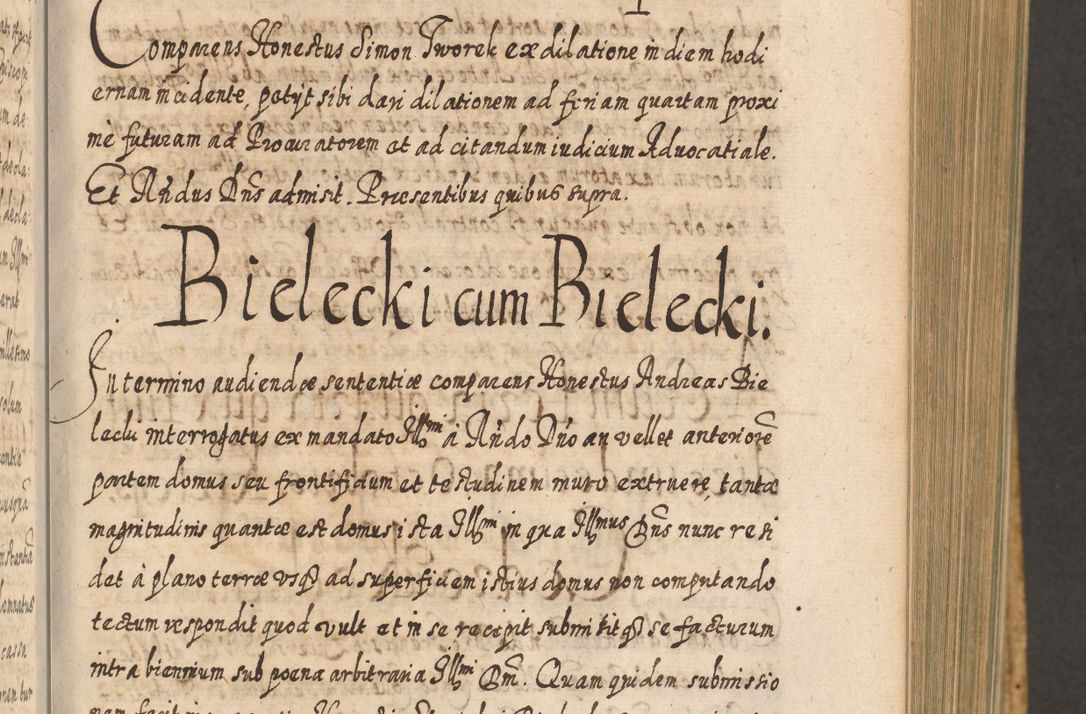 Comparens Honestus Simon Tworek ex dilatione in diem hodi
ernam incidente, petÿt sibi dari dilationem ad feriam quartam proxi
mè futuram ad Procuratorem et ad citandum iudicium Advocatiale.
Et Rn̄dus Dn̄s admisit. Præsentibus quibus supra.
Bielecki cum Bielecki.
In termino audiendæ sententiæ comparens Honestus Andreas Bie
lecki interrogatus ex mandato Illmi à Rn̄do Dn̄o an vellet anteriorē
partem domus seu frontispicium et testudinem muro extruere, tantæ
magnitudinis quantæ est domus ista Illmi in qua Illmus Dn̄s nunc resi
det à plano terræ usq3 ad superficiem istius domus non computando
tectum respondit quod vult et in se recipit submittitq3 se facturum
intra biennium sub poena arbitraria Illmi Dn̄i. Quam quidem submissio
nem